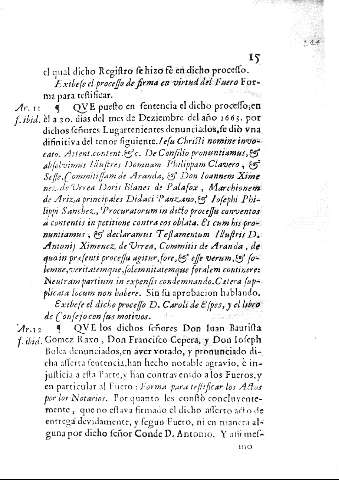 15
el qual dicho Registro se hizo fè en dicho processo.
Exibese el processo de firma en virtud del Fuero For-
ma para testificar.
Ar. 11 ¶ QVE puesto en sentencia el dicho processo, en
f. ibid. el a 20. dias del mes de Deziembre del año 1663. por
dichos señores Lugartenientes denunciados, se diò vna
difinitiva del tenor siguiente. Iesu Christi nomine invo-
cato. Attent. content. &c. De Consilio pronuntiamus, &
absolvimus Illustres Dominam Philippam Clavero, &
Sesse, Comitissam de Aranda, & Don Ioannem Xime
nez de Vrrea Doris Blanes de Palafox, Marchionem
de Ariza principales Didaci Panzano, & Iosephi Phi-
lippi Sanchez, Procuratorum in dicto processu conventos
à contentis in petitione contra eos oblata. Et cum his pro-
nuntiamus, & declaramus Testamentum Illustris D.
Antonij Ximenez de Vrrea, Commitis de Aranda, de
quo in presenti processu agitur, fore, & esse verum, & so-
lemne, veritatemque, solemnitatemque foralem continere:
Neutram partium in expensis condemnando. Cetera sup-
plicata locum non habere. Sin su aprobacion hablando.
Exibese el dicho processo D. Caroli de Espes, y el libro
de Consejo con sus motivos.
Ar. 12 ¶ QVE los dichos señores Don Iuan Bautista
f. ibid. Gomez Rayo, Don Francisco Cepera, y Don Ioseph
Bolea denunciados, en aver votado, y pronunciado di-
cha asserta sentencia, han hecho notable agravio, è in-
justicia a esta Parte, y han contravenido a los Fueros, y
en particular al Fuero: Forma para testificar los Actos
por los Notarios. Por quanto les constò concluyente-
mente, que no estava firmado el dicho asserto acto de
entrega devidamente, y segun Fuero, ni en manera al-
guna por dicho señor Conde D. Antonio. Y assi mes-
mo